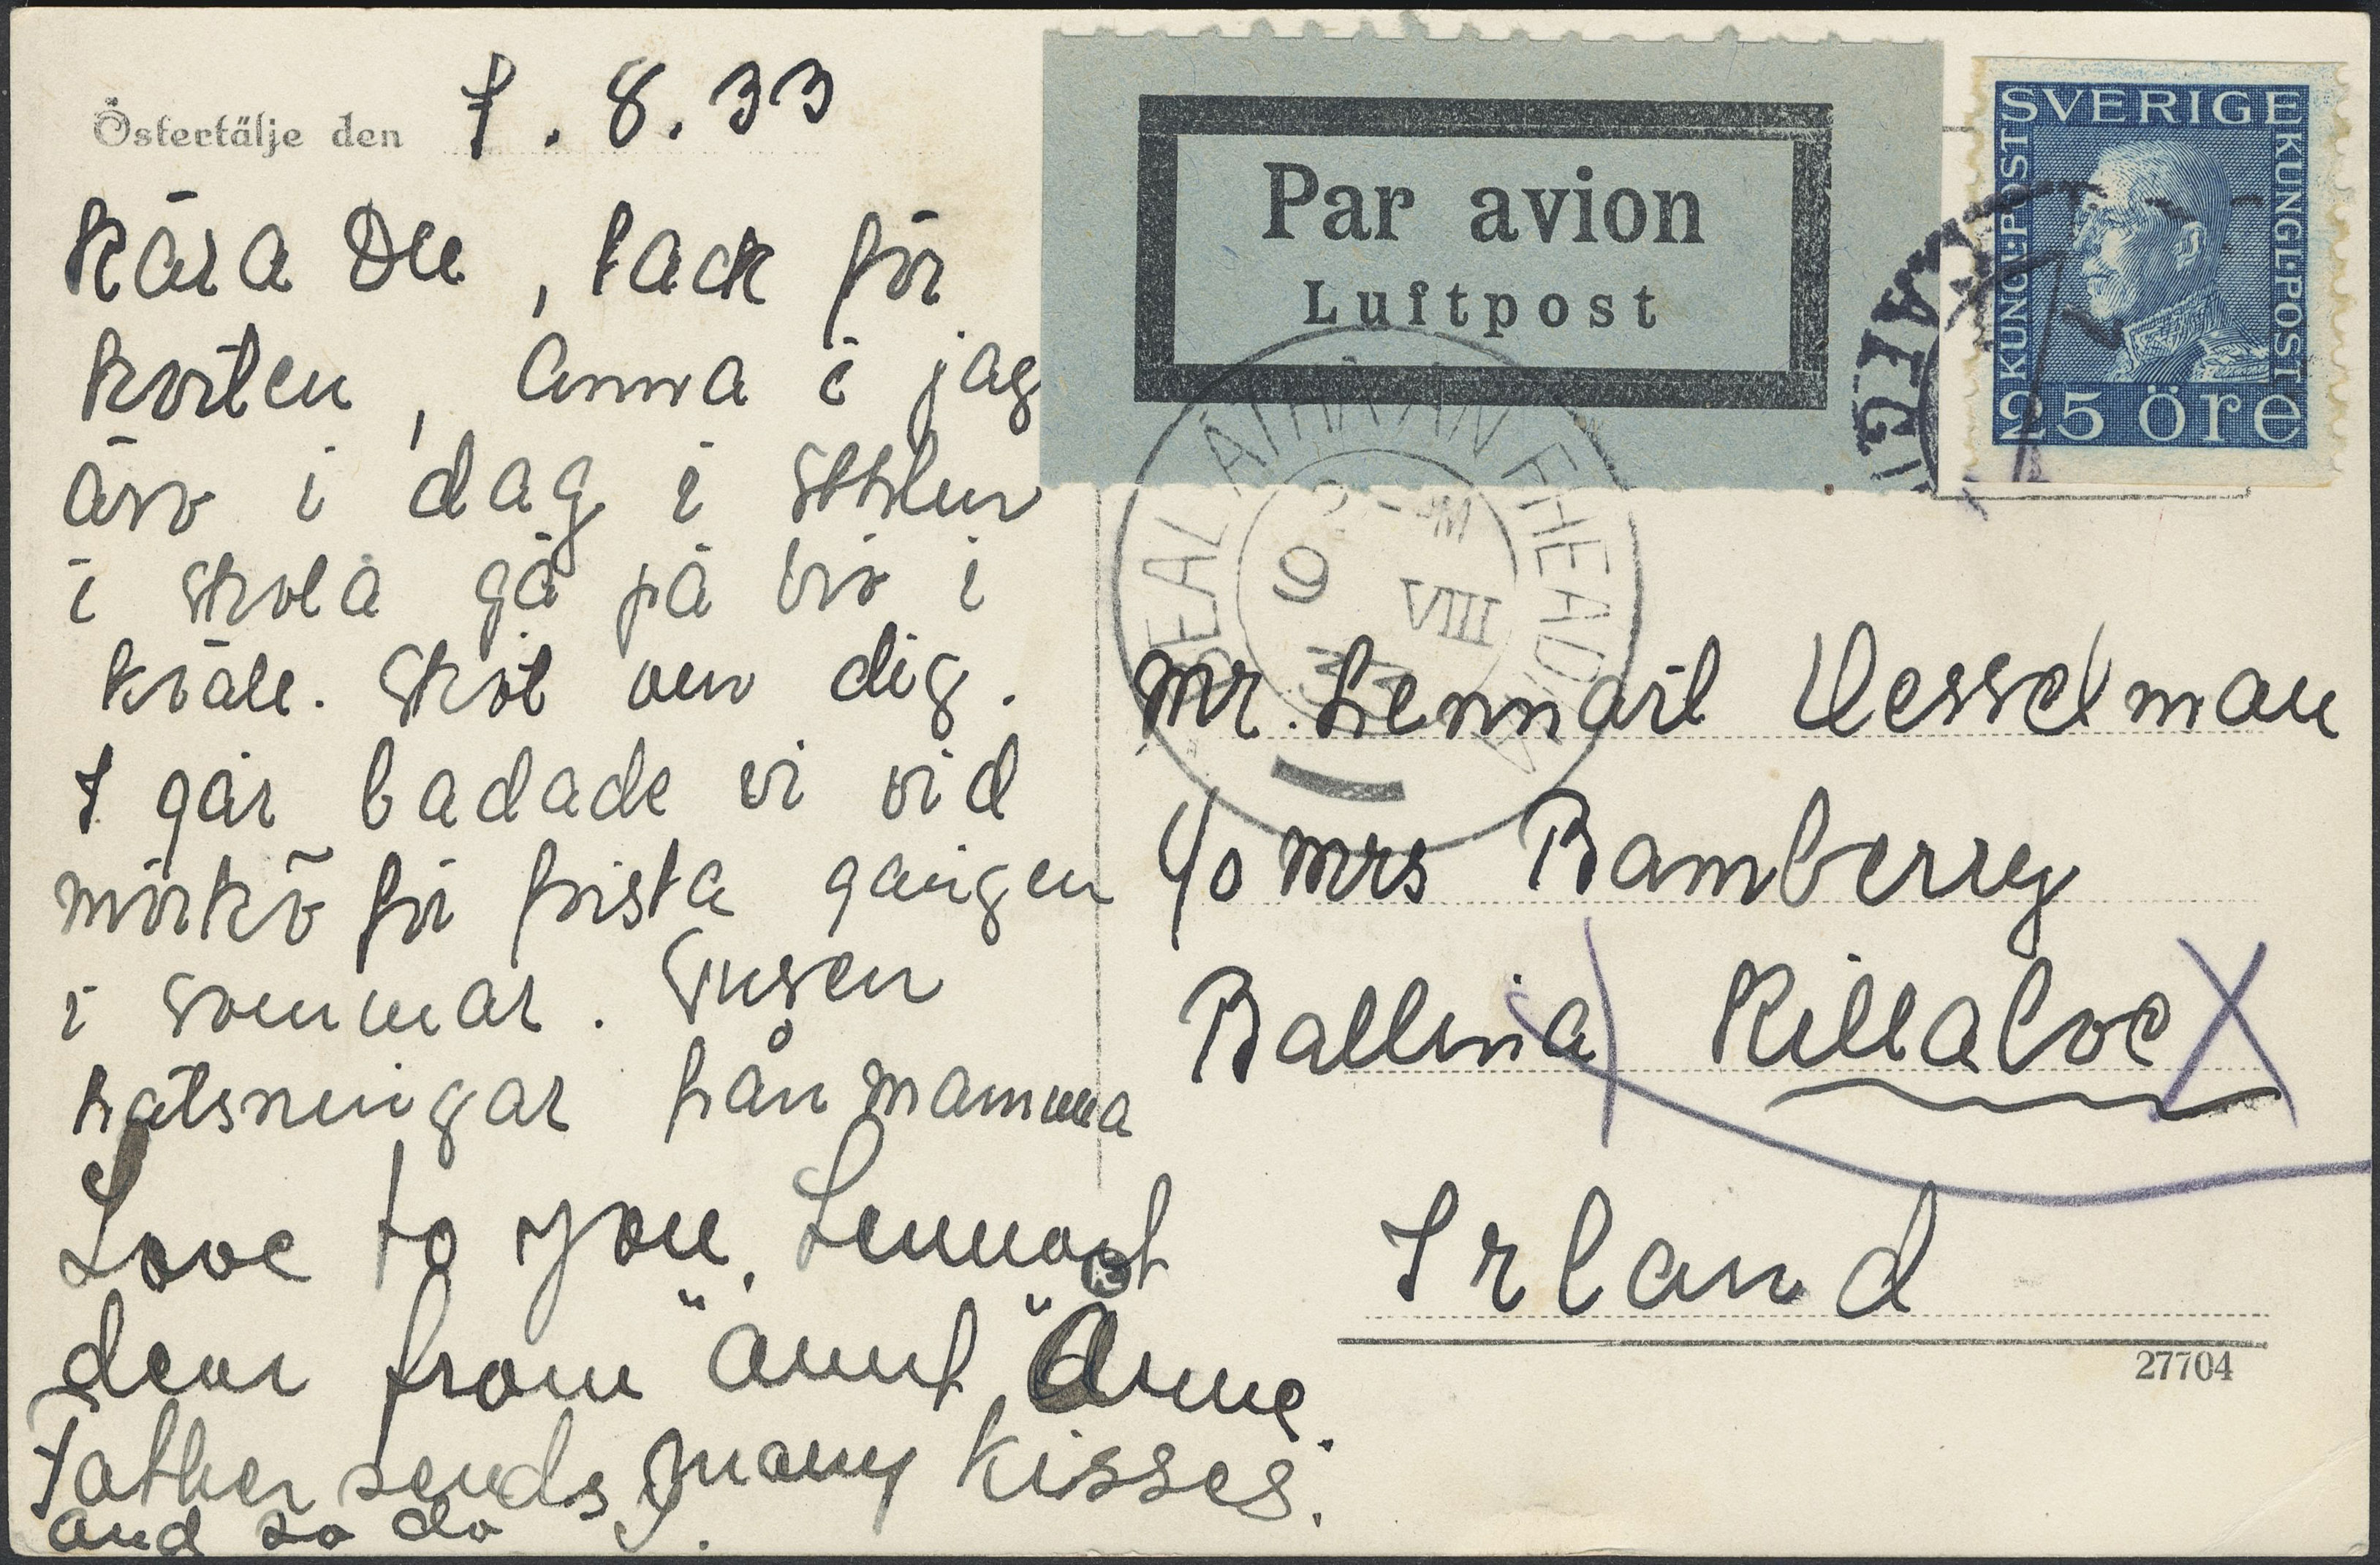 Östertälje den 7.8.33
Kära Du, tack för
korten, Anna o jag
äro i dag i sthlm
o skola gå på bio i
kväll. Sköt om dig.
I går badade vi vid
mörkö för första gången
i sommar. Tusen
hälsningar från mamma
Love to you, Lennart
dear from "Aunt" Anne.
Father sends many kisses.
and so do I.
Par avion
Luftpost
SVERIGE
KUNGL·POST
KUNGL·POST
25 öre
BEAL ATHA AN FHEADHA
9 VIII
33
Mr. Lennart Wesselman
c/o Mrs Bamberry
Ballina Killaloe
Irland
27704